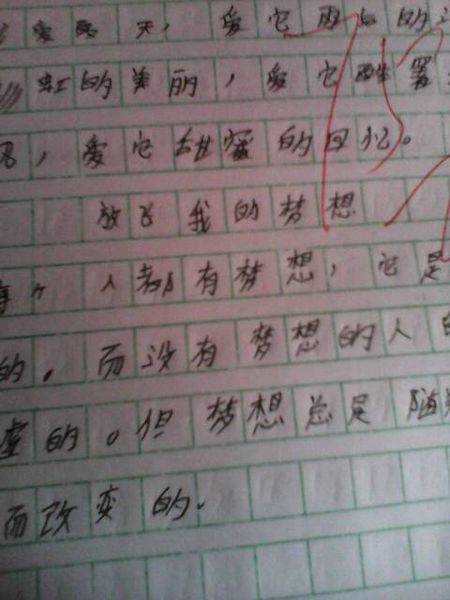 爱夏天，爱它雨后的
虹的美丽，爱它酷暑
，爱它甜蜜的回忆。
放飞我的梦想
每个人都有梦想，它是
的，而没有梦想的人
虚的。但梦想总是随着
而改变的。